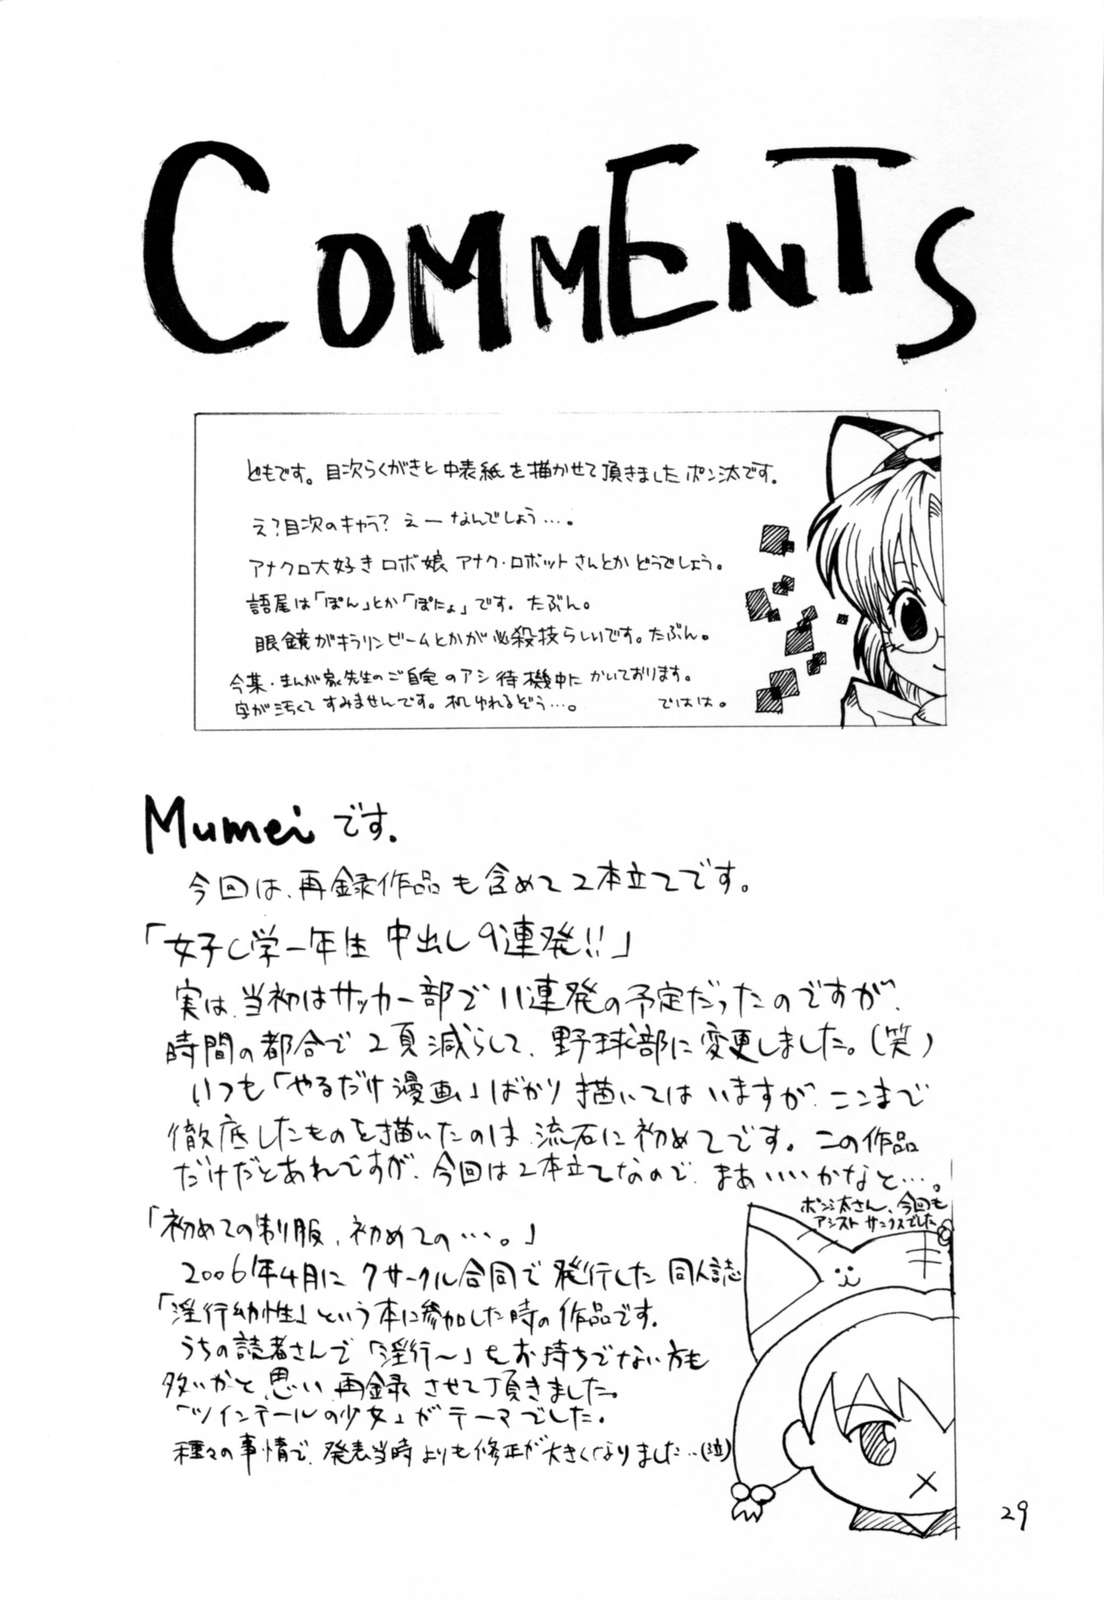 COMMENTS
どもです。目次らくがきと中表紙を描かせて頂きましたポン汰です。
え?目次のキャラ? えー なんでしょう…。
アナクロ大好きロボ娘 アナク・ロボットさんとかどうでしょう。
語尾は「ぽん」とか「ぽにょ」です。たぶん。
眼鏡がキラリンビームとかが必殺技らしいです。たぶん。
先生のご自宅のアシ待機中にかいております。
字が汚くてすみませんです。机ゆれるぞう…。 ではは。
Mumeiです.
今回は、再録作品も含めて2本立てです。
「女子C学一年生 中出し9連発!!」
実は、当初はサッカー部で11連発の予定だったのですが、
時間の都合で2頁減らして、野球部に変更しました。(笑)
いつも「やるだけ漫画」ばかり描いてはいますが、ここまで
徹底したものを描いたのは、流石に初めてです。この作品
だけだとあれですが、今回は2本立てなので、まあいいかなと…。
ポン汰さん、今回も
アシスト サンクスでした
「初めての制服、初めての…。」
2006年4月に クサークル合同で発行した同人誌
「淫行幼性」という本に参加した時の作品です.
うちの読者さんで「淫行〜」をお持ちでない方も
多いかと思い 再録させて頂きました。
「ツインテールの少女」がテーマでした.
種々の事情で、発表当時よりも修正が大きくなりました…(泣)
29